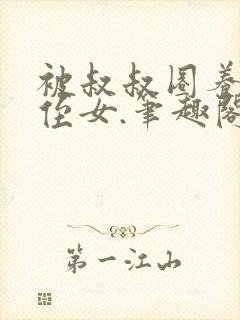 被叔叔圈养
侄女.笔趣阁
第一江山